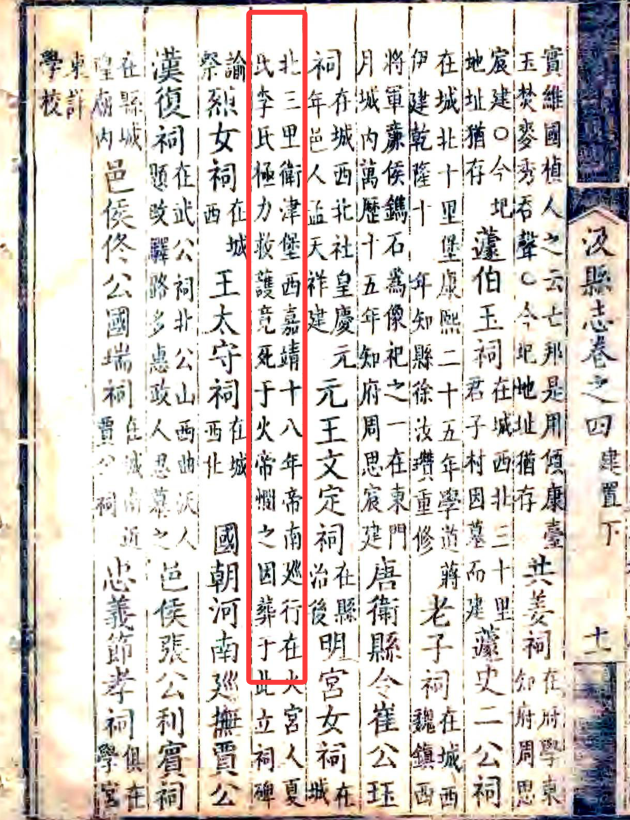 汲縣志卷之四 建置下 十一
實維國楨人之云亡邦是用傾康臺
玉焚麥秀吞聲〇今圯地址猶存
共姜祠
在府學東
知府周思
宸建〇今圯
地址猶存
蘧伯玉祠
在城西北三十里
君子村因墓而建
蘧史二公祠
在城北十里堡康熙二十五年學道蔣
伊建乾隆十 年知縣徐汝瓚重修
老子祠
在城西
魏鎮西
將軍廉侯鐫石爲像祀之一在東門
月城內萬歷十五年知府周思宸建
唐衛縣令崔公珏
祠
在城西北社皇慶元
年邑人孟天祥建
元王文定祠
在縣
治後
明宮女祠
在
城
北三里衛津堡西嘉靖十八年帝南廵行在火宮人夏
氏李氏極力救護竟死于火帝憫之因葬于此立祠碑
諭
祭
烈女祠
在城
西
王太守祠
在城
西北
國朝河南廵撫賈公
漢復祠
在武公祠北公山西曲沃人
題改驛路多惠政人思慕之
邑侯張公利賓祠
在縣城
隍廟內
邑侯佟公國瑞祠
在城南近
賈公祠
忠義節孝祠
俱在
學宮
東詳
學校